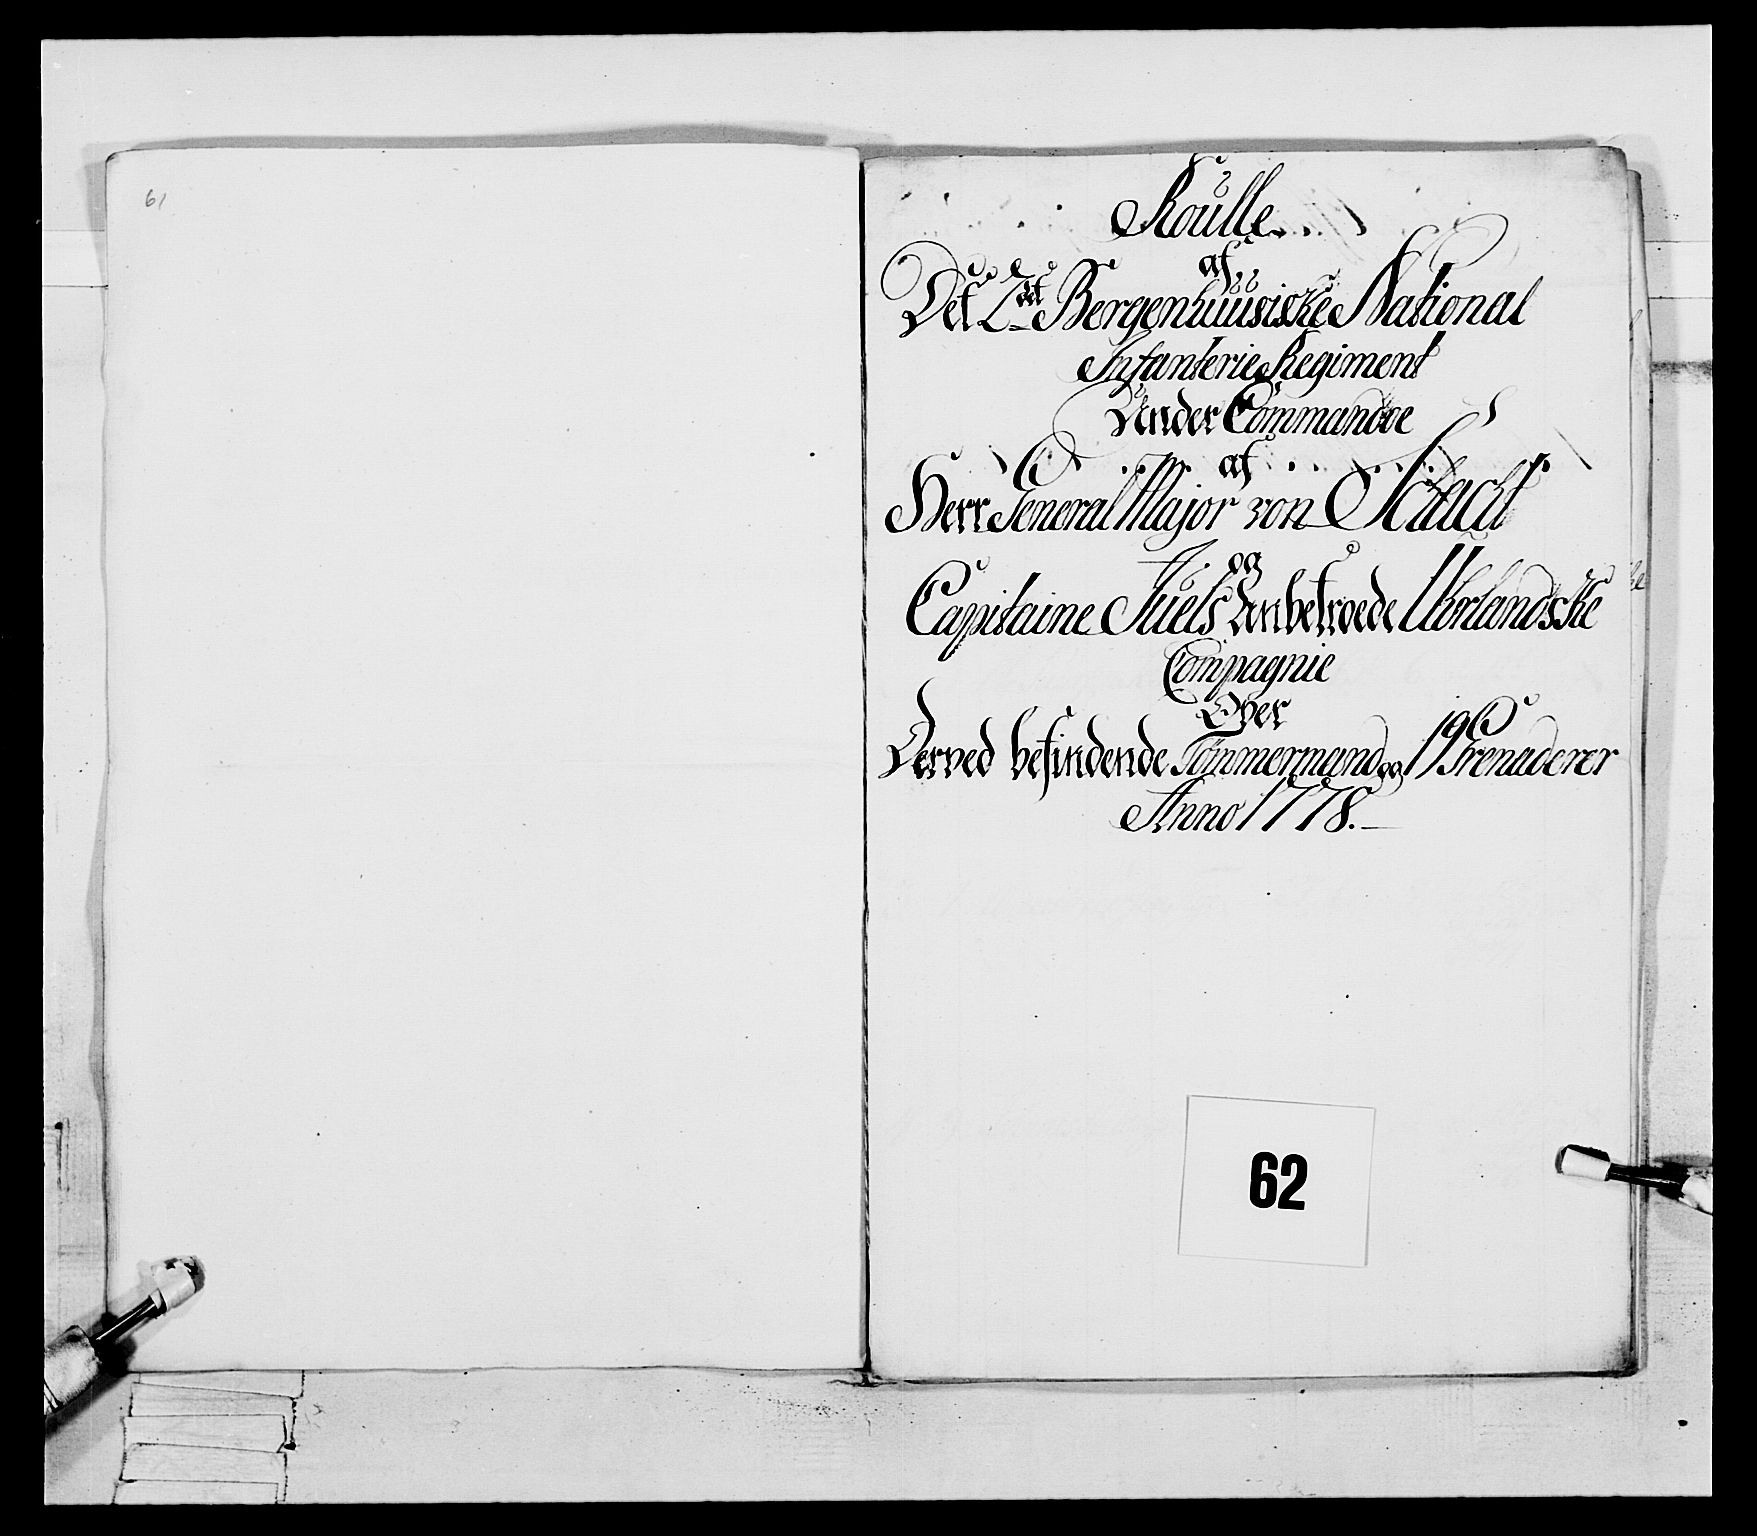 61
Roulle
af
Det 2det Bergenhuusiske National
Infanterie Regiment
Under Commando
af
Herr General Major von Schacht
og
Capitaine Juels Anbetroede Urlandske
Compagnie
Over
Derved befindende Tömmermand og 19 Grenaderer
Anno 1778.
62